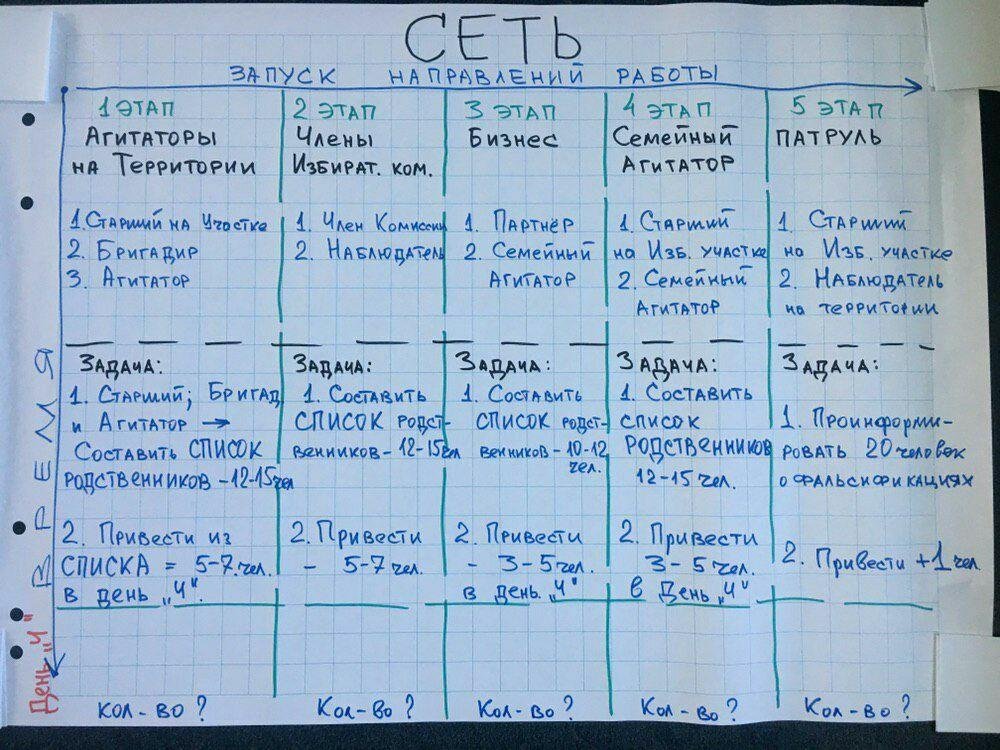 СЕТЬ
ЗАПУСК НАПРАВЛЕНИЙ РАБОТЫ
1 ЭТАП
АГИТАТОРЫ
НА ТЕРРИТОРИИ
1. Старший на Участке
2. Бригадир
3. Агитатор
Задача:
1. Старший; Бригад
и Агитатор →
Составить СПИСОК
РОДСТВЕННИКОВ – 12-15 чел
2. Привести из
СПИСКА = 5-7 чел.
в день „Ч".
Кол-во ?
2 ЭТАП
Члены
Избират. ком.
1. Член Комиссии
2. Наблюдатель
Задача:
1. Составить
СПИСОК РОДСТ-
ВЕННИКОВ – 12-15 чел
2. Привести
– 5-7 чел.
Кол-во ?
3 ЭТАП
Бизнес
1. Партнёр
2. Семейный
Агитатор
Задача:
1. Составить
СПИСОК РОДСТ-
ВЕННИКОВ – 10-12
чел.
2. Привести
– 3-5 чел.
в день „Ч"
Кол-во ?
4 ЭТАП
Семейный
Агитатор
1. Старший
на Изб. участке
2. Семейный
Агитатор
Задача:
1. Составить
СПИСОК
РОДСТВЕННИКОВ
12-15 чел.
2. Привести
3-5 чел.
в День „Ч"
Кол-во ?
5 ЭТАП
ПАТРУЛЬ
1. Старший
на Изб. участке
2. Наблюдатель
на территории
Задача:
1. Проинформи-
ровать 20 человек
о фальсификациях
2. Привести +1 чел.
Кол-во ?
ВРЕМЯ
День „Ч"